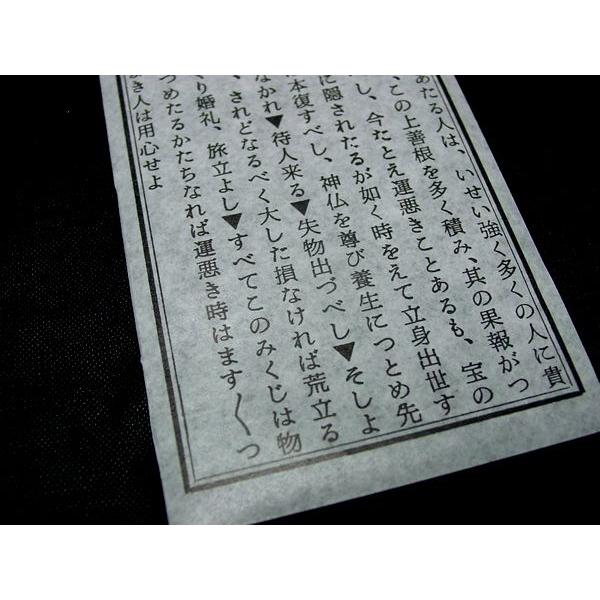 あたる人は、いせい強く多くの人に貴
、この上善根を多く積み、其の果報がつ
し、今たとえ運悪きことあるも、宝の
に隠されたるが如く時をえて立身出世す
本復すべし、神仏を尊び養生につとめ先
なかれ▼待人来る▼失物出づべし▼そしよ
、されどなるべく大した損なければ荒立る
り婚礼、旅立よし▼すべてこのみくじは物
つめたるかたちなれば運悪き時はます〱つ
き人は用心せよ